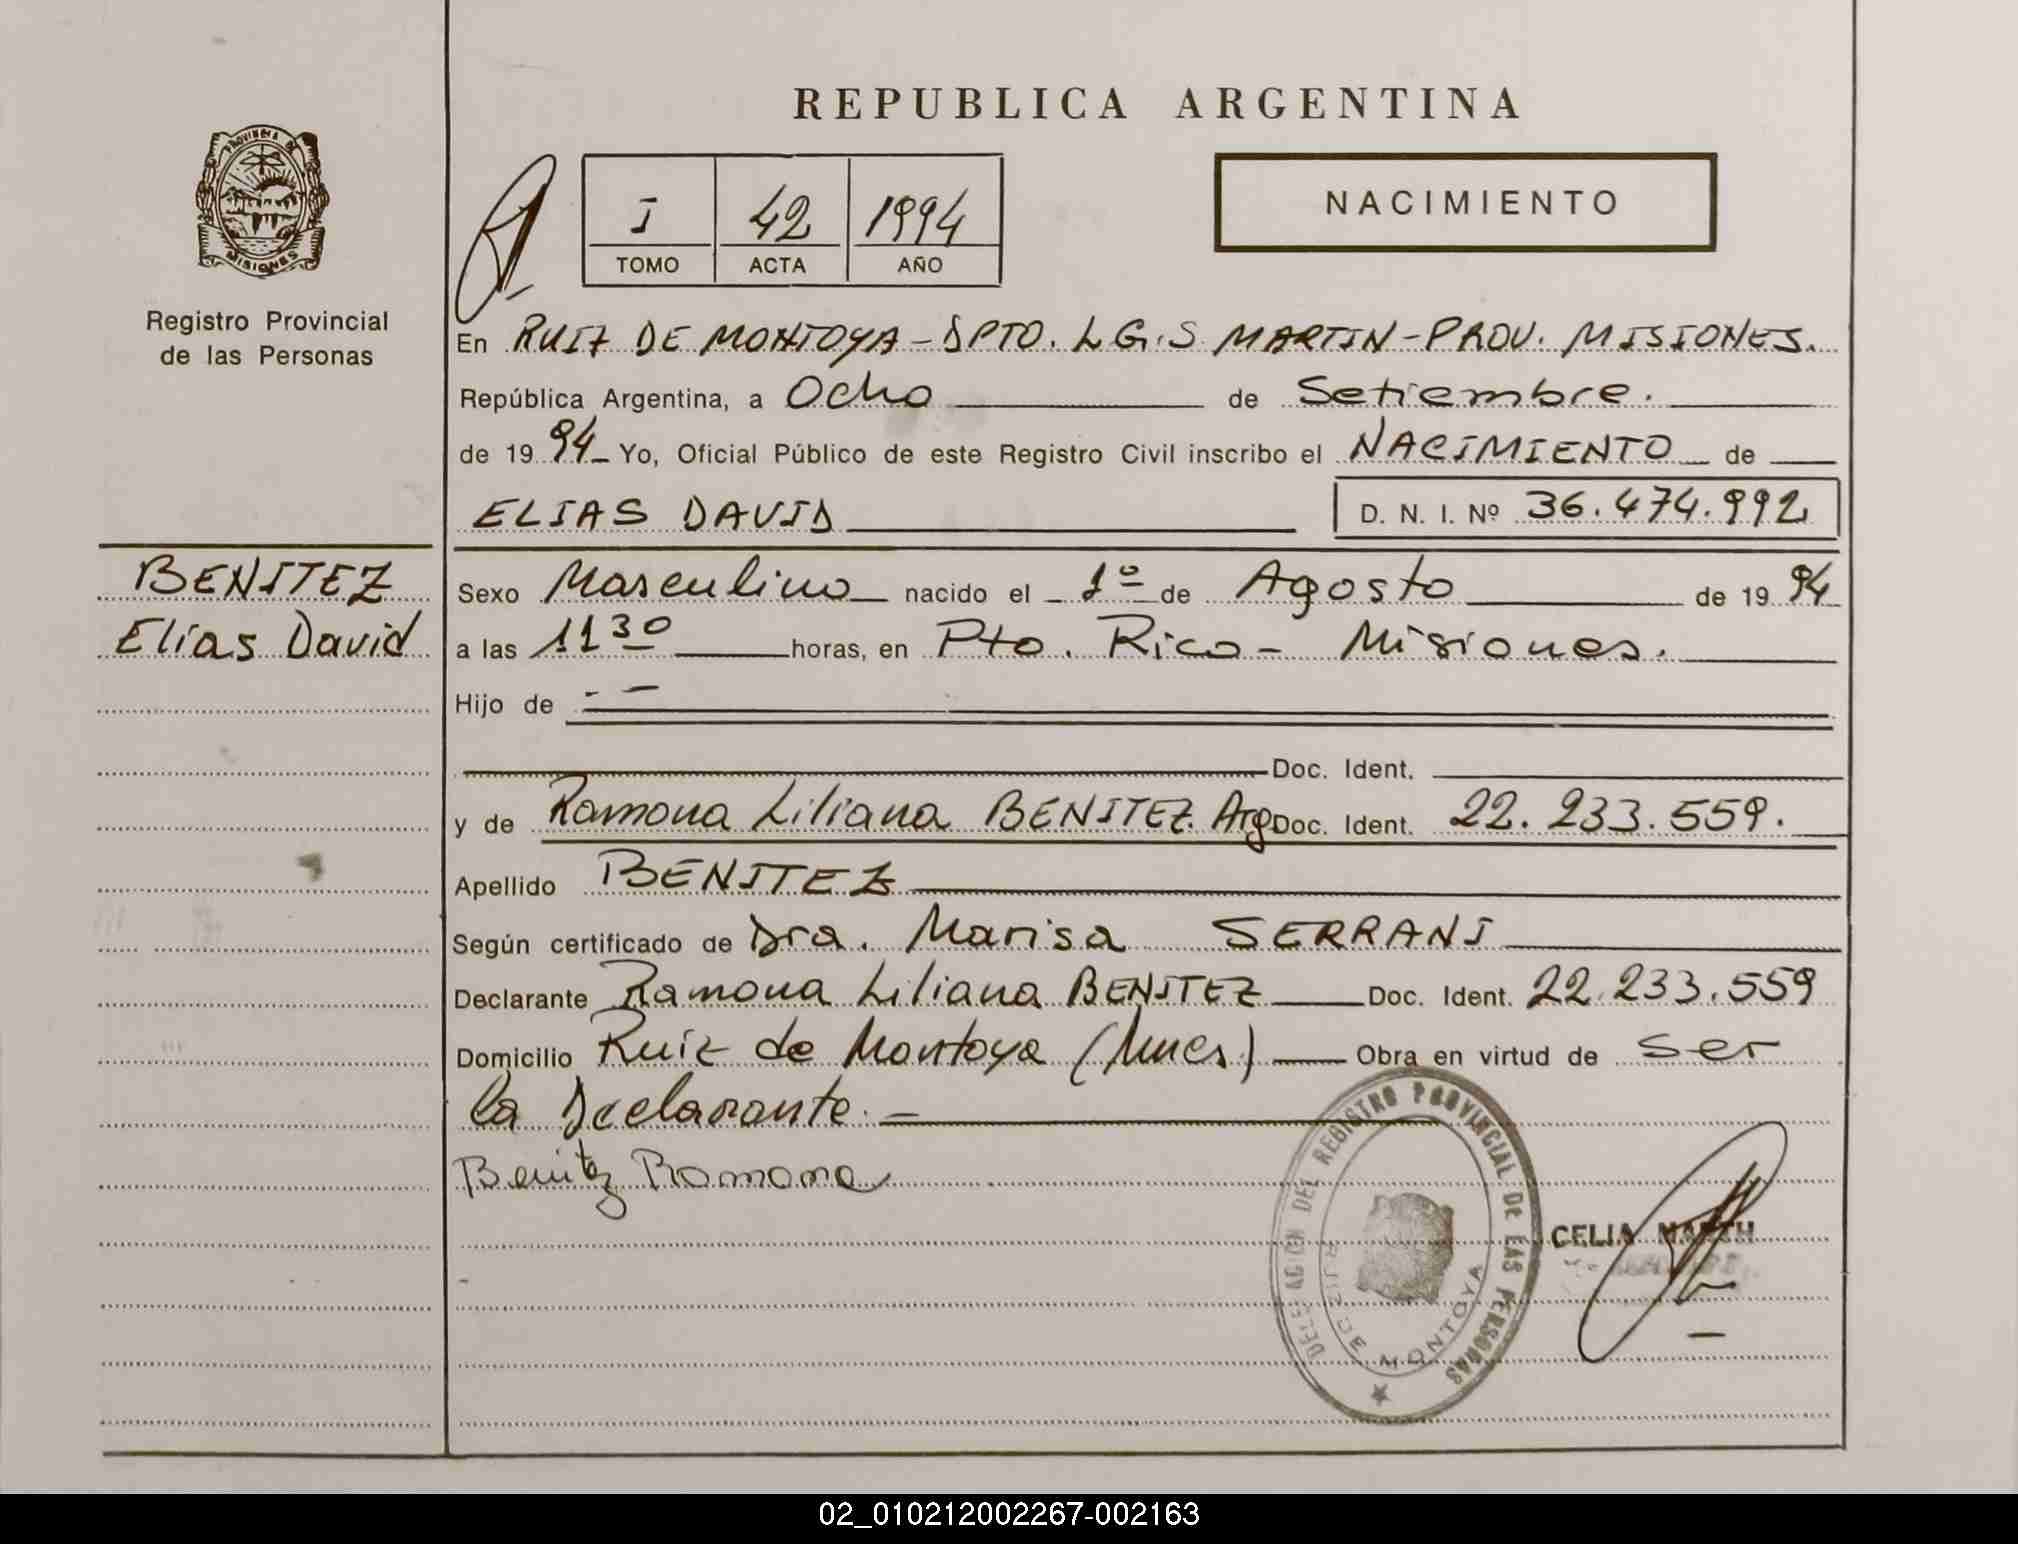 REPUBLICA ARGENTINA
PROVINCIA DE MISIONES
Registro Provincial
de las Personas
I 42 1994
TOMO ACTA AÑO
NACIMIENTO
En RUIZ DE MONTOYA - DPTO. L.G.S. MARTIN - PROV. MISIONES.
República Argentina, a Ocho de Setiembre.
de 1994 Yo, Oficial Público de este Registro Civil inscribo el NACIMIENTO de
ELIAS DAVID D. N. I. Nº 36.474.992
BENITEZ
Elias David
Sexo Masculino nacido el 1º de Agosto de 1994
a las 11 30 horas, en Pto. Rico - Misiones.
Hijo de
Doc. Ident.
y de Ramona Liliana BENITEZ Arg Doc. Ident. 22.233.559.
Apellido BENITEZ
Según certificado de Dra. Marisa SERRANI
Declarante Ramona Liliana BENITEZ Doc. Ident. 22.233.559
Domicilio Ruiz de Montoya (Mnes) Obra en virtud de ser
la Declarante.
Benitez Ramona
DELEGACION DEL REGISTRO PROVINCIAL DE LAS PERSONAS
RUIZ DE MONTOYA
CELIA
02_010212002267-002163